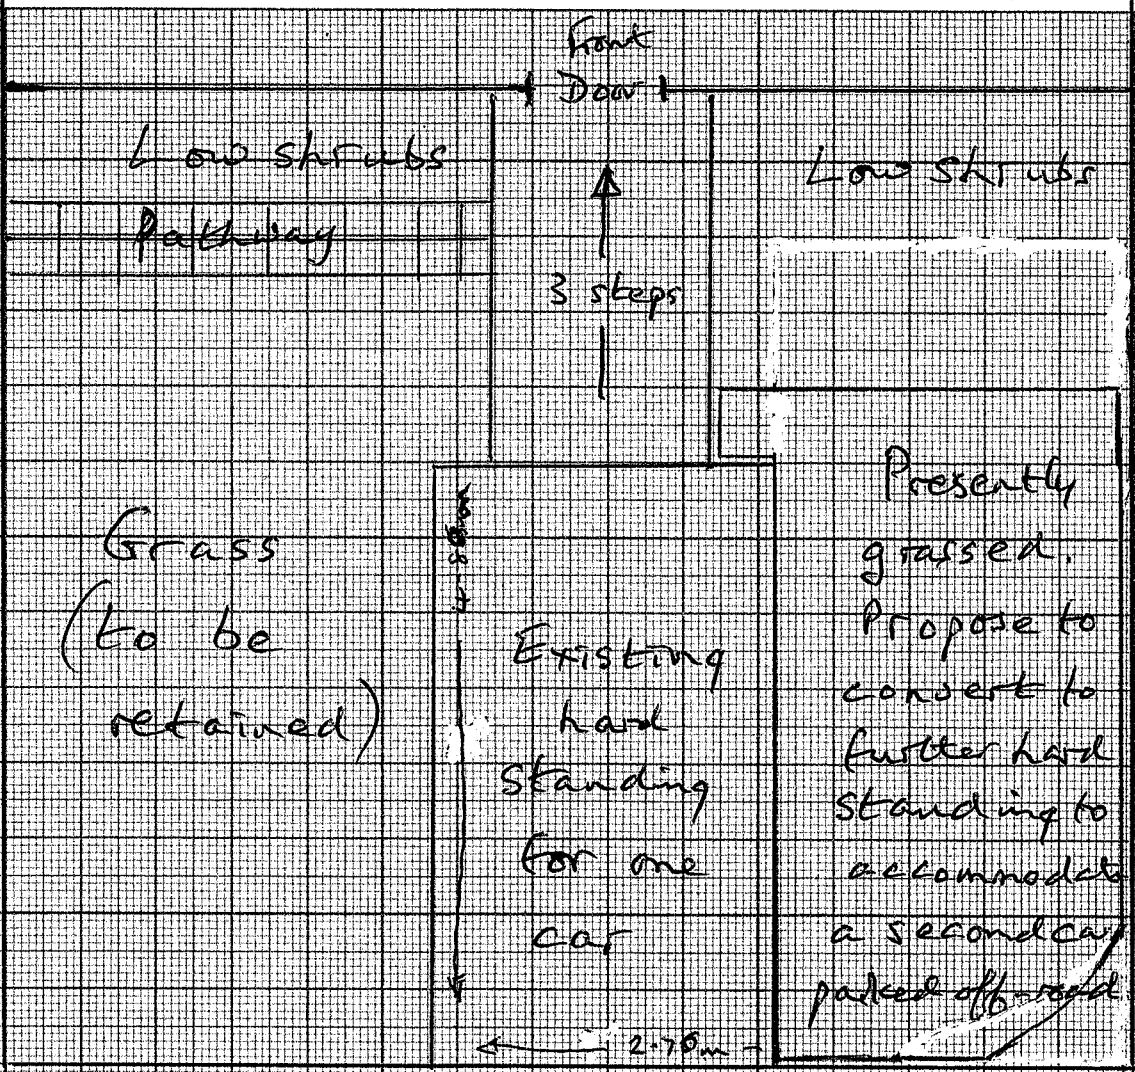 Front
Door
Low shrubs
Low shrubs
Pathway
3 steps
Grass
(to be
retained)
Existing
hard
standing
for one
car
2.70m
Presently
grassed.
Propose to
convert to
further hard
standing to
accommodate
a second car
parked off-road